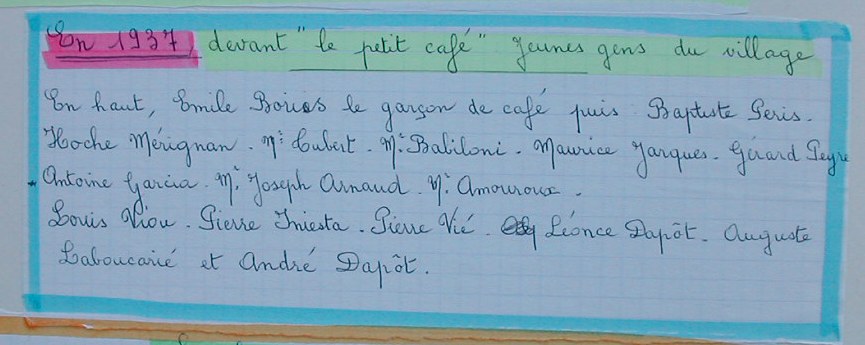 En 1937, devant "le petit café" jeunes gens du village
En haut, Emile Bories le garçon de café puis : Baptiste Peris.
Hoche Mérignan. Mr Cubert. Mr Babiloni. Maurice Jarques. Gérard Peyre
Antoine Garcia. Mr. Joseph Arnaud. Mr Amouroux.
Louis Viou. Pierre Iniesta. Pierre Vié. Léonce Dapôt. Auguste
Laboucarié et André Dapôt.